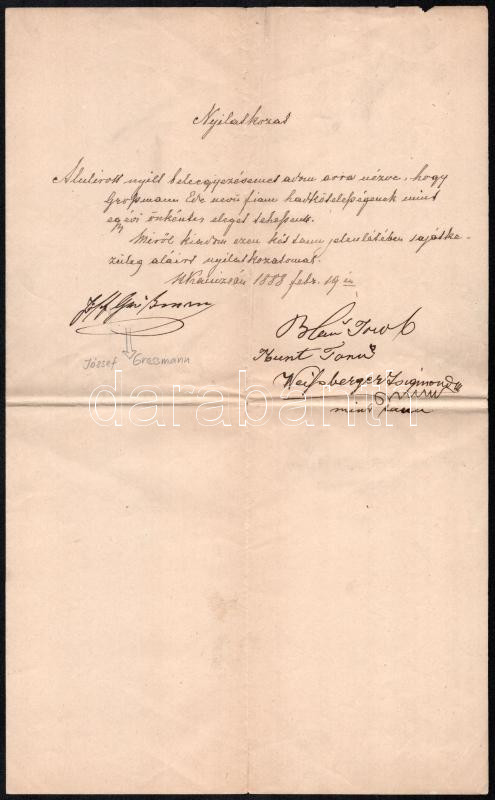 Nyilatkozat
Alulirott nyilt beleegyezésemet adom arra nézve, hogy
Großmann Ede nevü fiam hadkötelességének mint
egyévi önkéntes eleget tehessen.
Miről kiadom ezen két tanu jelenlétében sajátke-
züleg aláirt nyilatkozatomat.
NKanizsán 1888 febr. 19 én
József Großmann
Blau
mint tanu
Weißberger Zsigmond
mint tanu
József Grossmann
darabanth